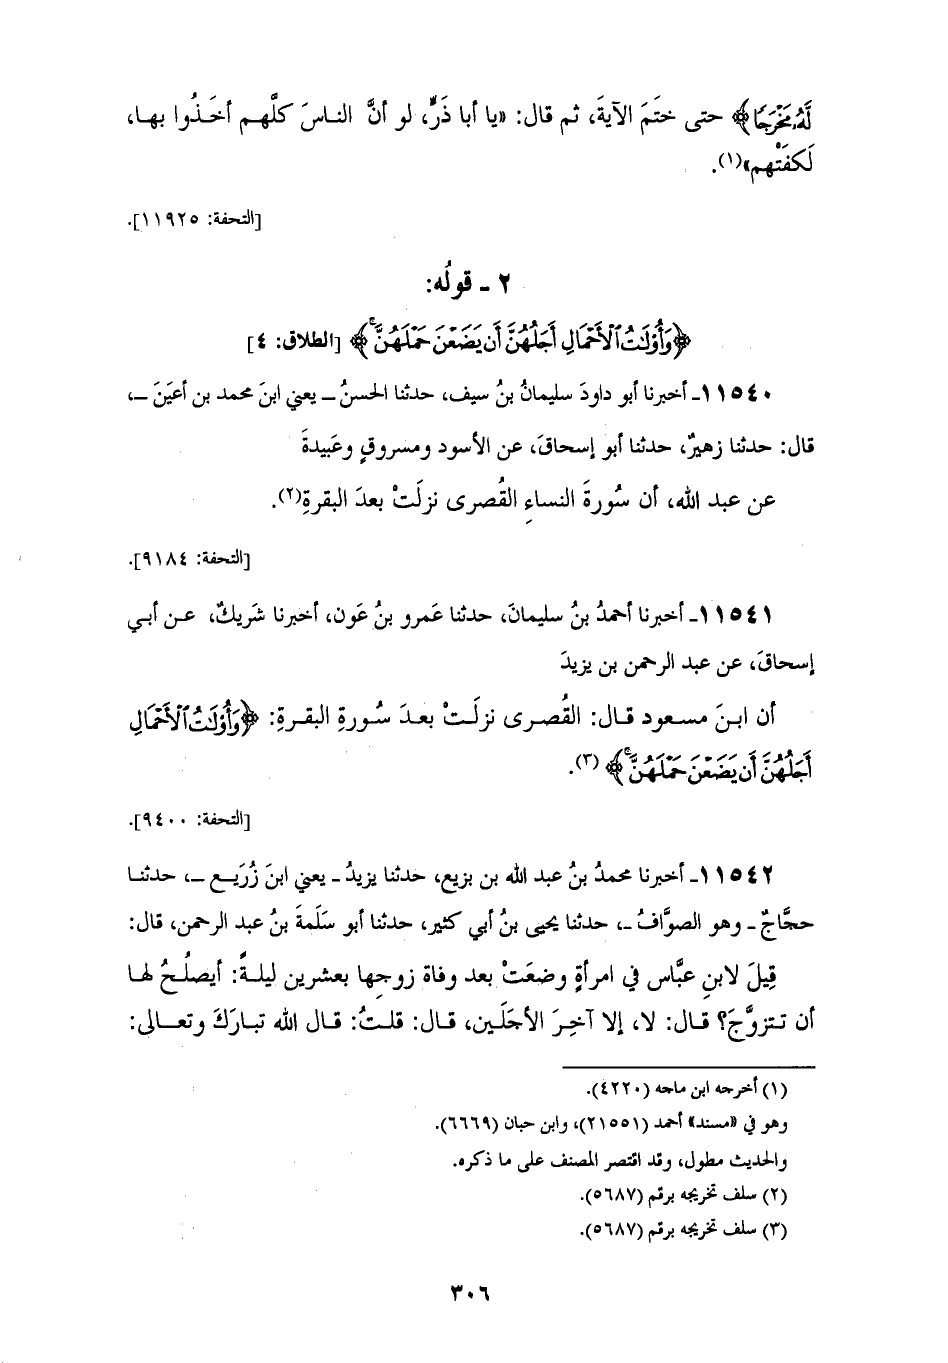 لَّهُۥ مَخْرَجًا﴾ حتى ختَمَ الآيةَ، ثم قال: «يا أبا ذَرٍّ، لو أنَّ الناسَ كلَّهم أخَذُوا بها،
لَكفَتْهم»(١).
[التحفة: ١١٩٢٥].
٢ ـ قولُه:
﴿وَأُوْلَٰتُ ٱلْأَحْمَالِ أَجَلُهُنَّ أَن يَضَعْنَ حَمْلَهُنَّ ۚ﴾ [الطلاق: ٤]
١١٥٤٠ـ أخبرنا أبو داودَ سليمانُ بنُ سيف، حدثنا الحسنُ ـ يعني ابنَ محمد بن أعيَنَ ـ،
قال: حدثنا زهيرٌ، حدثنا أبو إسحاقَ، عن الأسود ومسروقٍ وعَبيدةَ
عن عبد الله، أن سُورةَ النساءِ القُصرى نزلَتْ بعدَ البقرةِ(٢).
[التحفة: ٩١٨٤].
١١٥٤١ـ أخبرنا أحمدُ بنُ سليمانَ، حدثنا عَمرو بنُ عَون، أخبرنا شَريكٌ، عن أبي
إسحاقَ، عن عبد الرحمن بن يزيدَ
أن ابنَ مسعود قال: القُصرى نزلَتْ بعدَ سُورةِ البقرةِ: ﴿وَأُوْلَٰتُ ٱلْأَحْمَالِ
أَجَلُهُنَّ أَن يَضَعْنَ حَمْلَهُنَّ ۚ﴾ (٣).
[التحفة: ٩٤٠٠].
١١٥٤٢ـ أخبرنا محمدُ بنُ عبد الله بن بزيع، حدثنا يزيدُ ـ يعني ابنَ زُرَيع ـ، حدثنا
حجَّاجٌ ـ وهو الصوَّافُ ـ، حدثنا يحيى بنُ أبي كثير، حدثنا أبو سَلَمةَ بنُ عبد الرحمن، قال:
قِيلَ لابنِ عبَّاس في امرأةٍ وضعَتْ بعد وفاة زوجِها بعشرين ليلةً: أيصلُحُ لها
أن تتزوَّجَ؟ قال: لا، إلا آخِرَ الأجَلَين، قال: قلتُ: قال الله تبارَكَ وتعالى:
(١) أخرجه ابن ماجه (٤٢٢٠).
وهو في «مسند» أحمد (٢١٥٥١)، وابن حبان (٦٦٦٩).
والحديث مطول، وقد اقتصر المصنف على ما ذكره.
(٢) سلف تخريجه برقم (٥٦٨٧).
(٣) سلف تخريجه برقم (٥٦٨٧).
٣٠٦